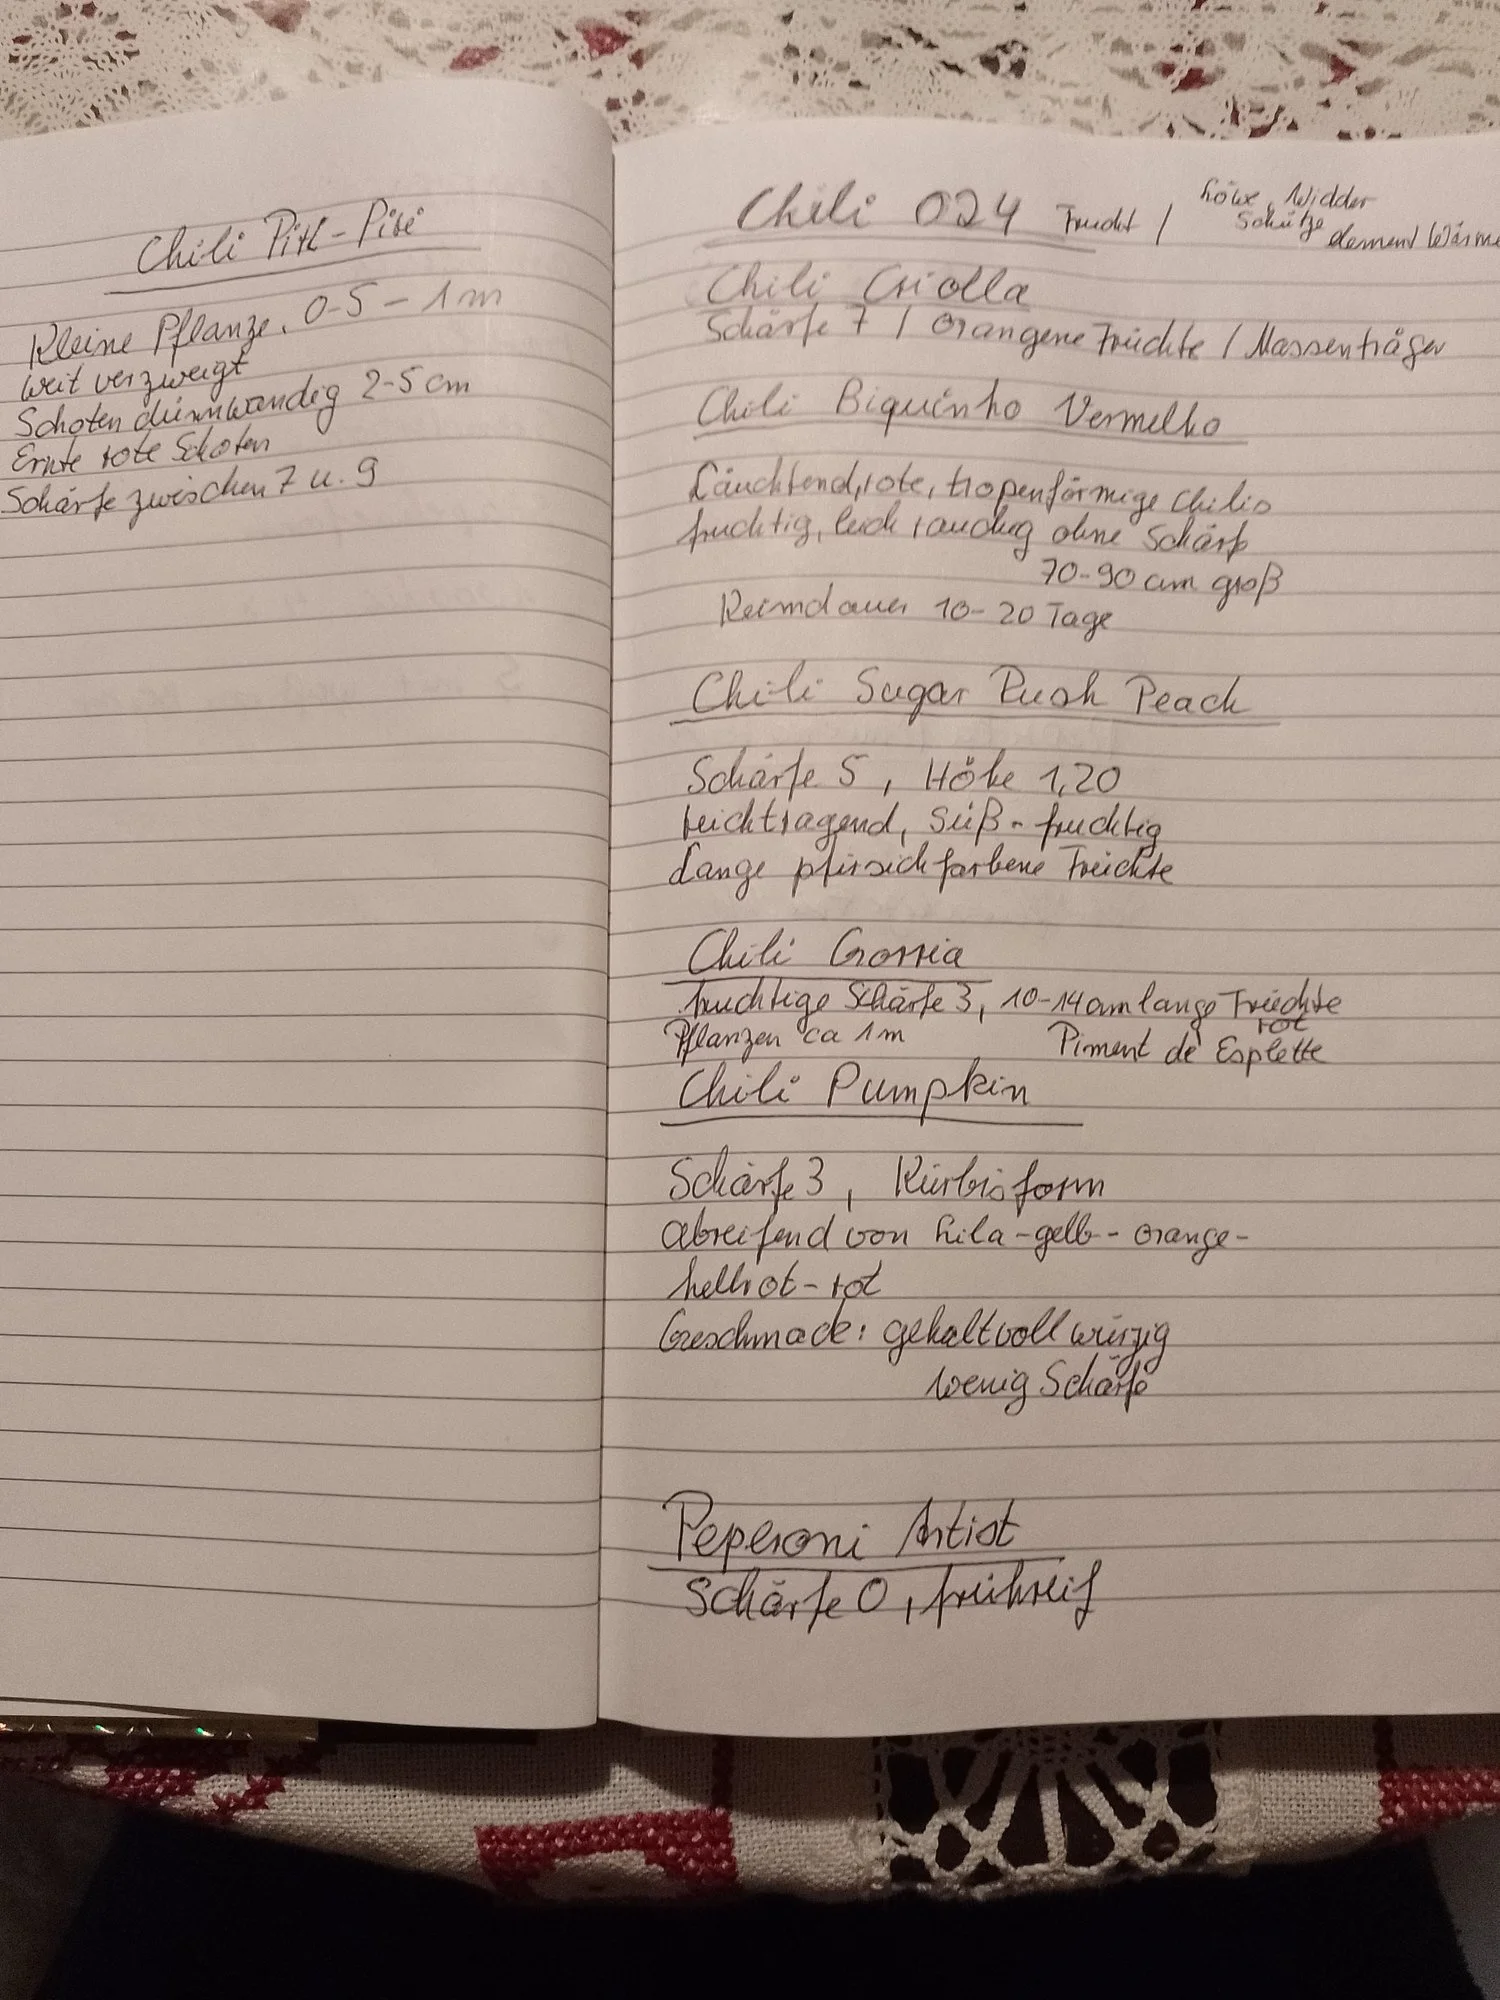 Chili Piri-Piri
Kleine Pflanze, 0-5 - 1m
weit verzweigt
Schoten dünnwandig 2-5 cm
Ernte rote Schoten
Schärfe zwischen 7 u. 9
Chili 024 Frucht / Löwe, Widder
Schütze
element Wärme
Chili Criolla
Schärfe 7 / Orangene Früchte / Massenträger
Chili Biquinho Vermelho
Läuchtend, rote, tropenförmige Chilis
fruchtig, leich rauchig ohne Schärfe
70-90 cm groß
Keimdauer 10-20 Tage
Chili Sugar Rush Peach
Schärfe 5, Höhe 1,20
reichtragend, süß-fruchtig
Lange pfirsichfarbene Früchte
Chili Gorria
fruchtige Schärfe 3, 10-14 cm lange Früchte
rot
Pflanzen ca 1m Piment de Esplette
Chili Pumpkin
Schärfe 3, Kürbisform
abreifend von Lila-gelb-orange-
hellrot-rot
Geschmack: gehaltvoll würzig
wenig Schärfe
Peperoni Artist
Schärfe 0, frühreif